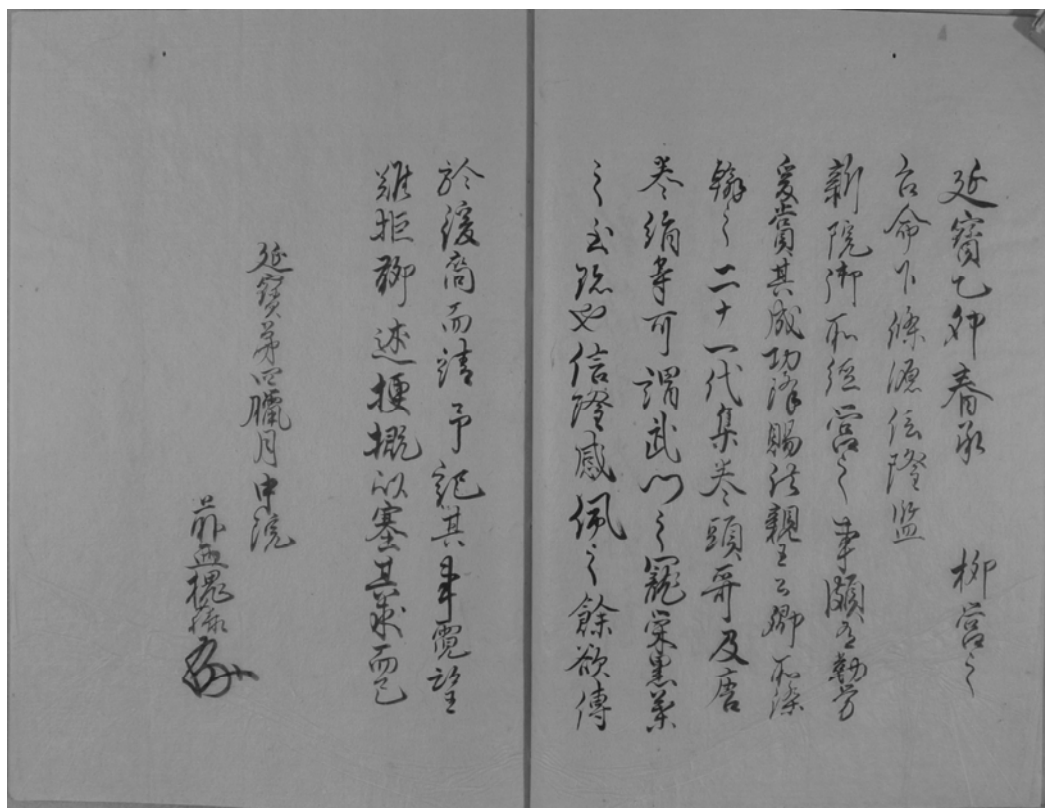 延寶乙卯春承 柳営之
台命下條源信隆監
新院御所経営之事頗有勤労
爰賞其成功降賜諸親王公卿所染
翰之二十一代集巻頭哥及唐
巻絹等可謂武門之寵栄
之至 也信隆感佩之餘欲傳
於後裔而請予記其事寛望
難拒聊述梗概以塞其求而已
延寶第四臘月中浣
前亜槐